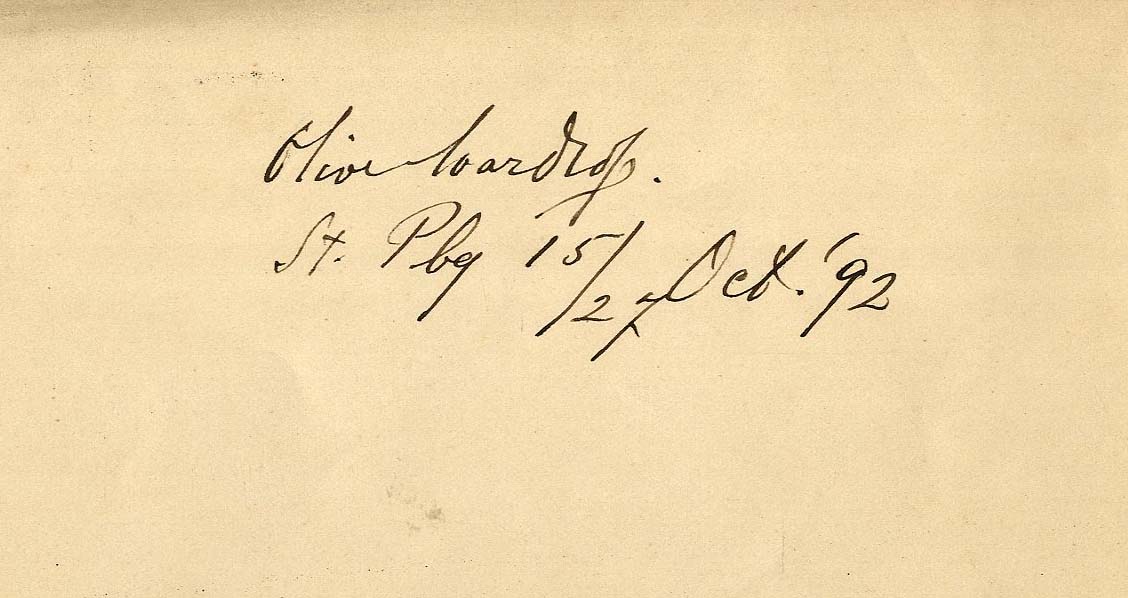 Olive Wardrop.
St. Pbg 15/27 Oct. '92